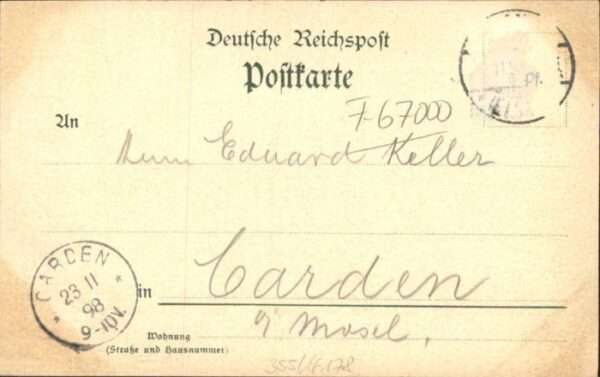 Deutsche Reichspost
Postkarte
Pf.
7-67000
An
Herrn Eduard Keller
CARDEN
23 11
98
9-10V.
in
Carden
a/ Mosel,
Wohnung
(Straße und Hausnummer)
355/4.178